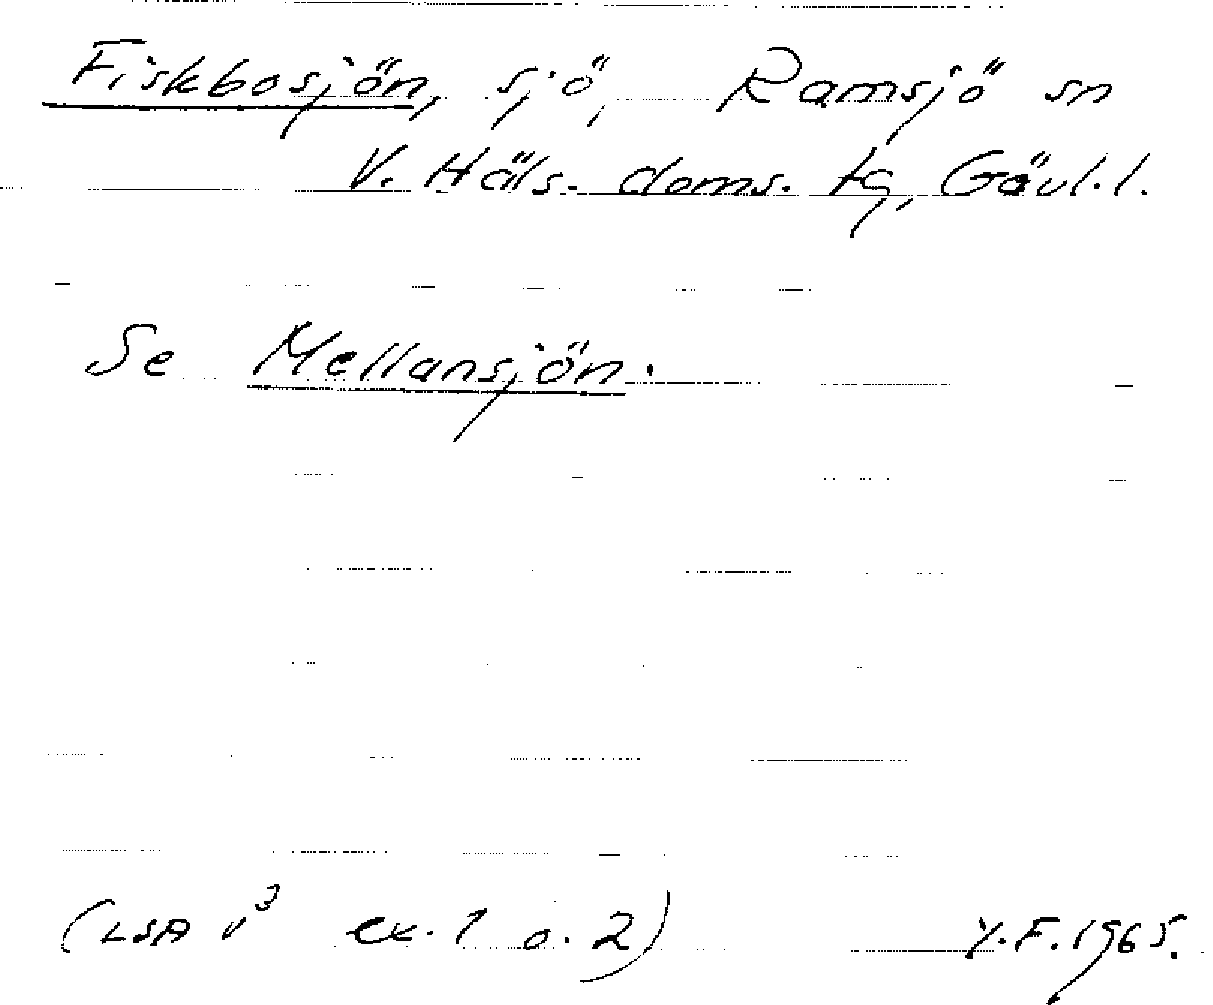 Fiskbosjön, sjö, Ramsjö sn
V. Häls. doms. tg, Gävl.l.
Se Mellansjön.
(LSA v³ ex. 1 o. 2) Y.F. 1965.